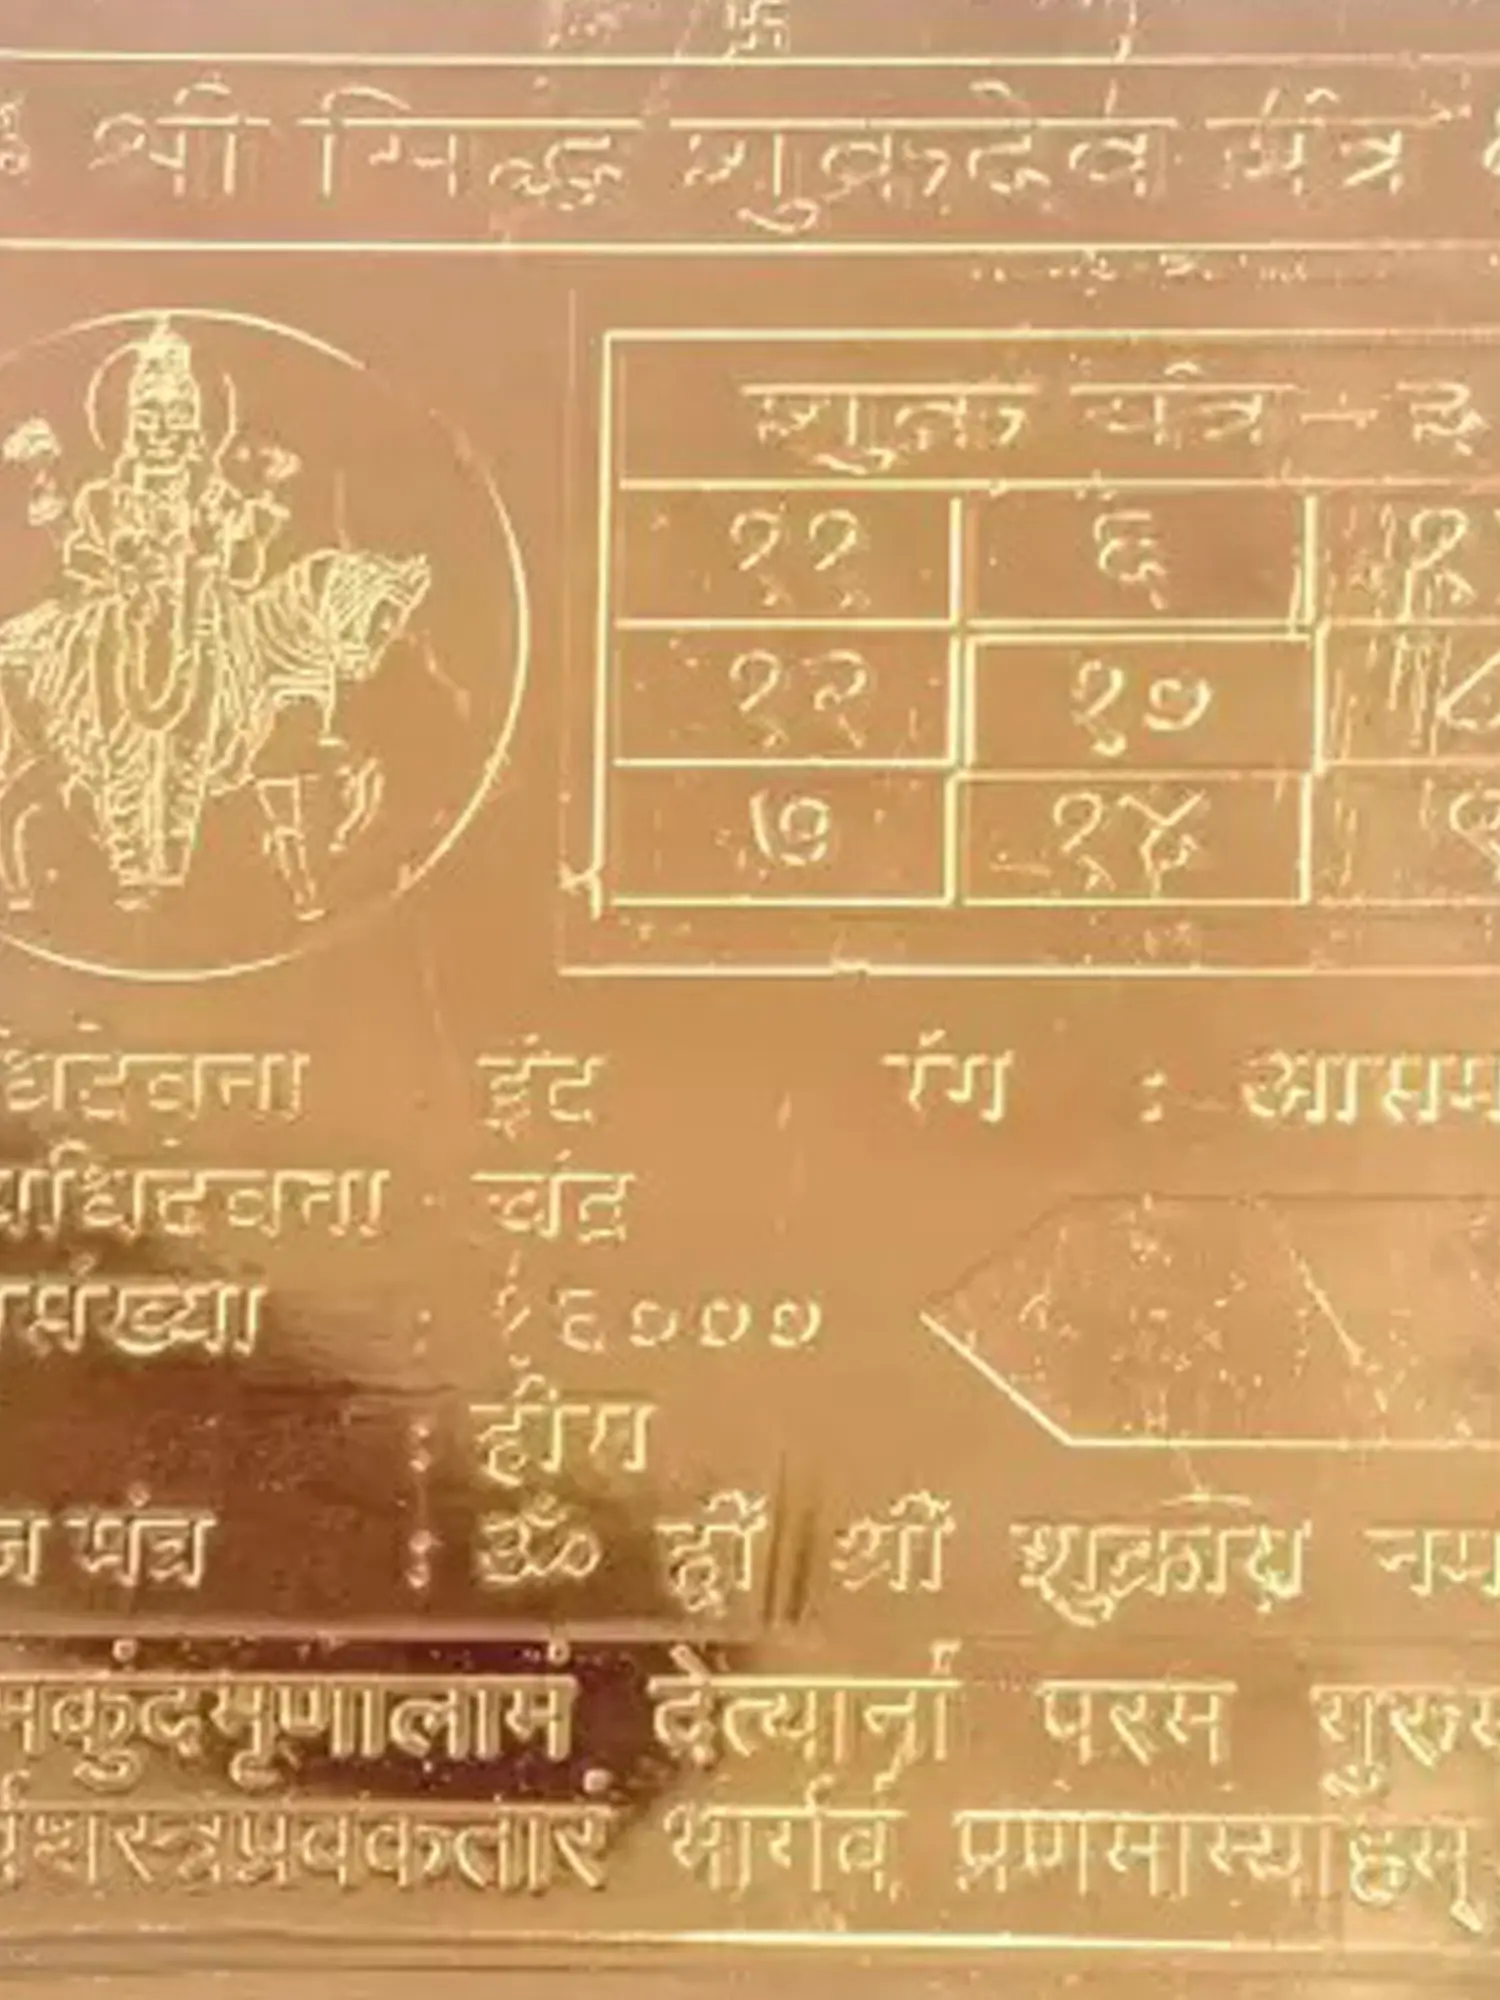 श्री सिद्ध शुक्रदेव यंत्र
शुक्र यंत्र -
११ ६
१२ १० ८
७ १४
धिदेवता इंद्र रंग : आसम
याधिदेवता चंद्र
संख्या : १६०००
: हीरा
मंत्र : ॐ ह्रीं श्रीं शुक्राय नम
मकुंदमृणालामं देत्यानां परम गुरुम
र्वशस्त्रप्रवकतारं भार्गवं प्रणमाम्याहम्